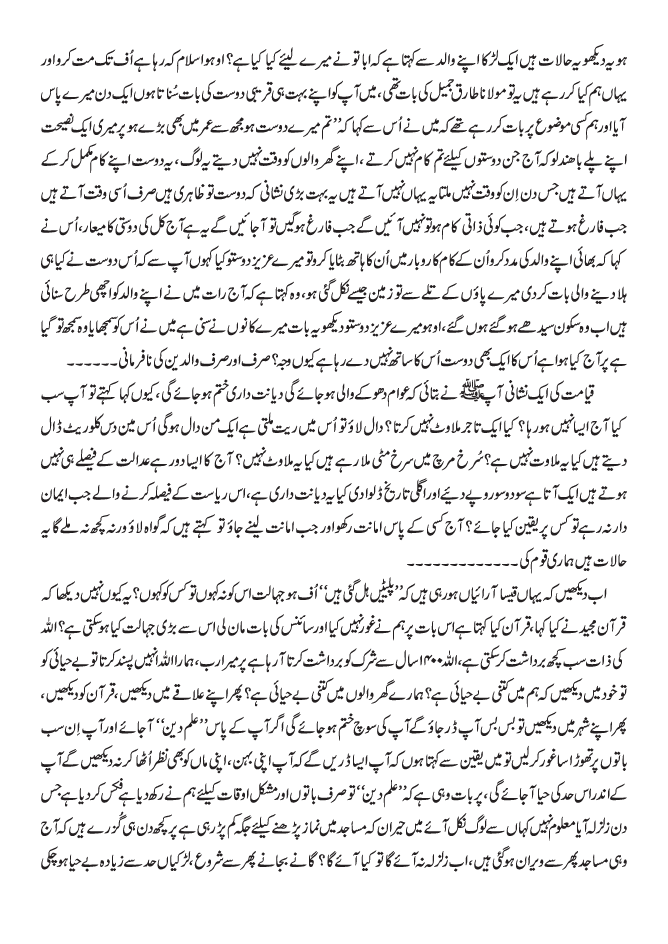 ہو یہ دیکھو یہ حالات ہیں ایک لڑکا اپنے والد سے کہتا ہے کہ ابا تو نے میرے لیئے کیا کیا ہے؟ اوہو اسلام کہ رہا ہے اُف تک مت کرو اور
یہاں ہم کیا کر رہے ہیں یہ تو مولانا طارق جمیل کی بات تھی، میں آپ کو اپنے بہت ہی قریبی دوست کی بات سُناتا ہوں ایک دن میرے پاس
آیا اور ہم کسی موضوع پر بات کر رہے تھے کہ میں نے اُس سے کہا کہ ”تم میرے دوست ہو مجھ سے عمر میں بھی بڑے ہو پر میری ایک نصیحت
اپنے پلے باھند لو کہ آج جن دوستوں کیلئے تم کام نہیں کرتے، اپنے گھر والوں کو وقت نہیں دیتے یہ لوگ، یہ دوست اپنے کام مکمل کر کے
یہاں آتے ہیں جس دن اِن کو وقت نہیں ملتا یہ یہاں نہیں آتے ہیں یہ بہت بڑی نشانی کہ دوست تو ظاہری ہیں صرف اُسی وقت آتے ہیں
جب فارغ ہوتے ہیں، جب کوئی ذاتی کام ہو تو نہیں آئیں گے جب فارغ ہوگیں تو آ جائیں گے یہ ہے آج کل کی دوستی کا میعار، اُس نے
کہا کہ بھائی اپنے والد کی مدد کرو اُن کے کام کاروبار میں اُن کا ہاتھ بٹایا کرو تو میرے عزیز دوستو کیا کہوں آپ سے کہ اُس دوست نے کیا ہی
ہلا دینے والی بات کر دی میرے پاؤں کے تلے سے تو زمین جیسے نکل گئی ہو، وہ کہتا ہے کہ آج رات میں نے اپنے والد کو اچھی طرح سنائی
ہیں اب وہ سکون سیدھے ہو گئے ہوں گئے، اوہو میرے عزیز دوستو دیکھو یہ بات میرے کانوں نے سنی ہے میں نے اُس کو سمجھایا وہ سمجھ تو گیا
ہے پر آج کیا ہوا ہے اُس کا ایک بھی دوست اُس کا ساتھ نہیں دے رہا ہے کیوں وجہ؟ صرف اور صرف والدین کی نافرمانی۔۔۔۔۔۔
قیامت کی ایک نشانی آپ ﷺ نے بتائی کہ عوام دھوکے والی ہو جائے گی دیانت داری ختم ہو جائے گی، کیوں کہا کہتے تو آپ سب
کیا آج ایسا نہیں ہو رہا؟ کیا ایک تاجر ملاوٹ نہیں کرتا؟ دال لاؤ تو اُس میں ریت ملتی ہے ایک من دال ہوگی اُس مین دس کلو ریٹ ڈال
دیتے ہیں کیا یہ ملاوت نہیں ہے؟ سُرخ مرچ میں سرخ مٹی ملا رہے ہیں کیا یہ ملاوٹ نہیں؟ آج کا ایسا دور ہے عدالت کے فیصلے ہی نہیں
ہوتے ہیں ایک آتا ہے سو دو سو روپے دیئے اور اگلی تاریخ ڈلوا دی کیا یہ دیانت داری ہے، اس ریاست کے فیصلہ کرنے والے جب ایمان
دار نہ رہے تو کس پر یقین کیا جائے؟ آج کسی کے پاس امانت رکھو اور جب امانت لینے جاؤ تو کہتے ہیں کہ گواہ لاؤ ورنہ کچھ نہ ملے گا یہ
حالات ہیں ہماری قوم کی۔۔۔۔۔۔۔۔۔۔۔۔۔
اب دیکھیں کہ یہاں قیسا آرائیاں ہو رہی ہیں کہ ”پلیٹیں ہل گئی ہیں“ اُف ہو جہالت اس کو نہ کہوں تو کس کو کہوں؟ یہ کیوں نہیں دیکھا کہ
قرآن مجید نے کیا کہا، قرآن کیا کہتا ہے اس بات پر ہم نے غور نہیں کیا اور سائنس کی بات مان لی اس سے بڑی جہالت کیا ہو سکتی ہے؟ اللہ
کی ذات سب کچھ برداشت کر سکتی ہے، اللہ ۱۴۰۰ سال سے شرک کو برداشت کرتا آ رہا ہے پر میرا رب، ہمارا اللہ انہیں پسند کرتا تو بے حیائی کو
تو خود میں دیکھیں کہ ہم میں کتنی بے حیائی ہے؟ ہمارے گھر والوں میں کتنی بے حیائی ہے؟ پھر اپنے علاقے میں دیکھیں، قرآن کو دیکھیں،
پھر اپنے شہر میں دیکھیں تو بس بس آپ ڈر جاؤ گے آپ کی سوچ ختم ہو جائے گی اگر آپ کے پاس ”علم دین“ آ جائے اور آپ اِن سب
باتوں پر تھوڑا سا غور کر لیں تو میں یقین سے کہتا ہوں کہ آپ ایسا ڈریں گے کہ آپ اپنی بہن، اپنی ماں کو بھی نظر اُٹھا کر نہ دیکھیں گے آپ
کے اندر اس حد کی حیا آ جائے گی، پر بات وہی ہے کہ ”علم دین“ تو صرف باتوں اور مشکل اوقات کیلئے ہم نے رکھ دیا ہے فکس کر دیا ہے جس
دن زلزلہ آیا معلوم نہیں کہاں سے لوگ نکل آئے میں حیران کہ مساجد میں نماز پڑھنے کیلئے جگہ کم پڑ رہی ہے پر کچھ دن ہی گُزرے ہیں کہ آج
وہی مساجد پھر سے ویران ہو گئی ہیں، اب زلزلہ نہ آئے گا تو کیا آئے گا؟ گانے بجانے پھر سے شروع، لڑکیاں حد سے زیادہ بے حیا ہو چکی